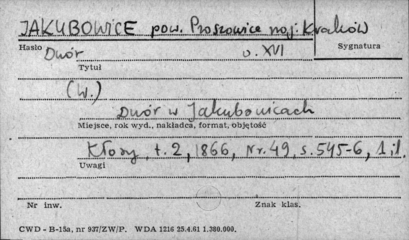 JAKUBOWICE pow. Proszowice woj. Kraków
Hasło Dwór w. XVI Sygnatura
Tytuł
(W.)
Dwór w Jakubowicach
Miejsce, rok wyd., nakładca, format, objętość
Kłosy, t. 2, 1866, Nr. 49, s. 545-6, 1 il.
Uwagi
Nr inw. Znak klas.
CWD - B-15a, nr 937/ZW/P. WDA 1216 25.4.61 1.380.000.